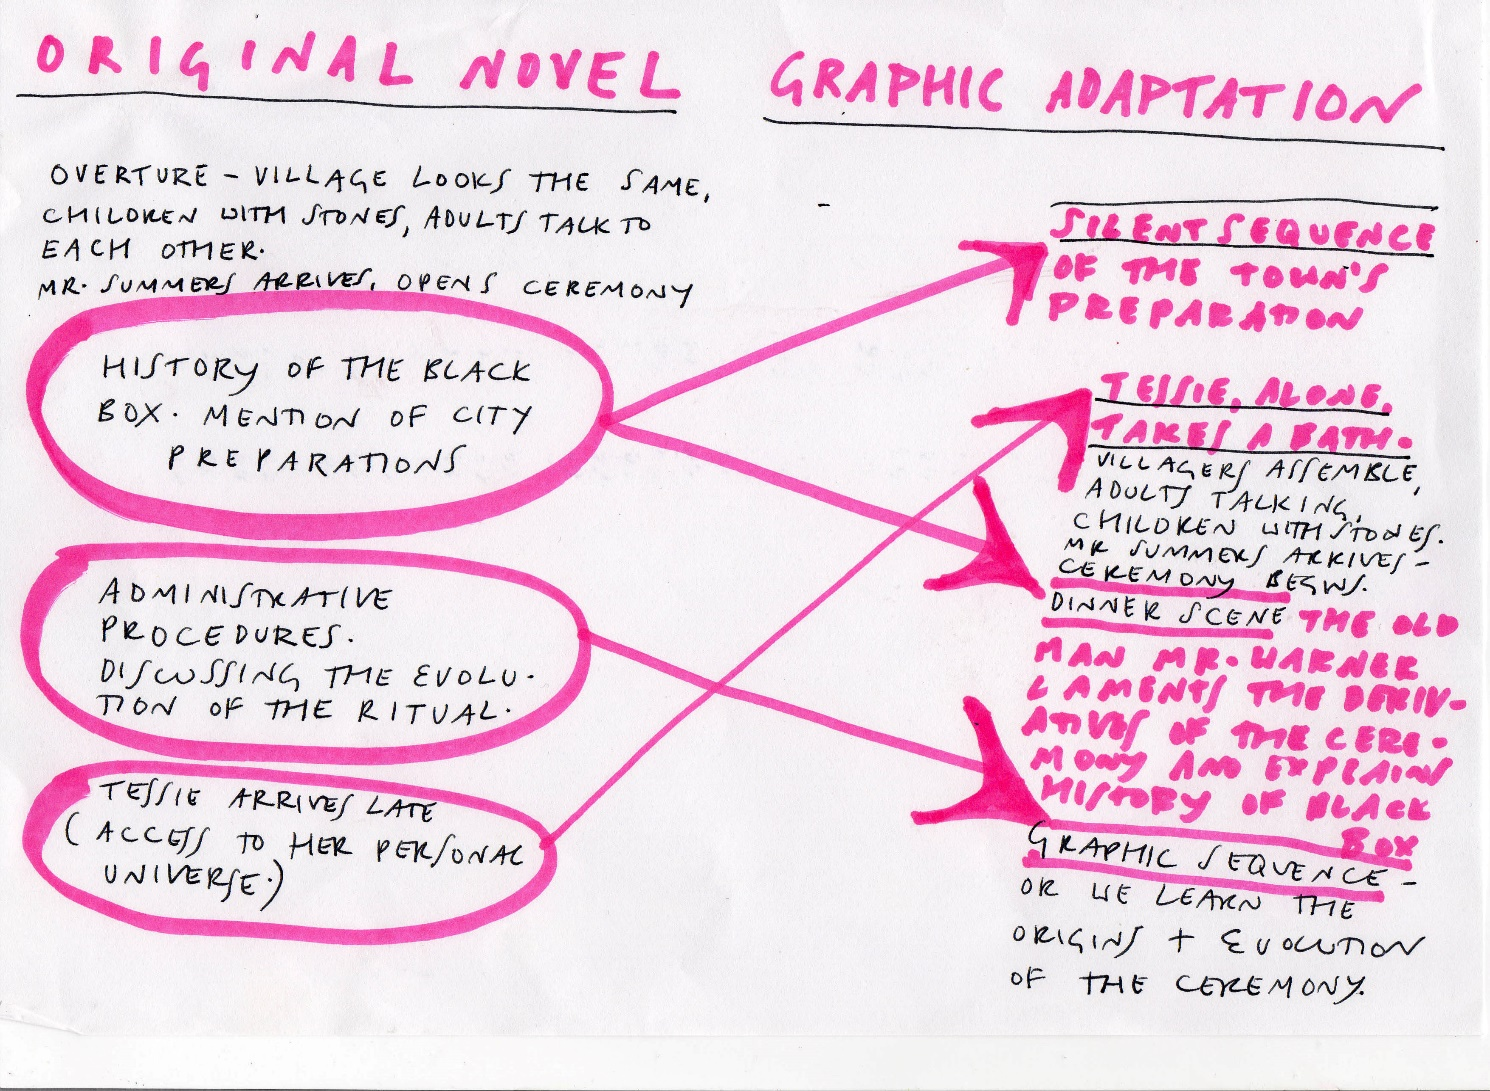 ORIGINAL NOVEL
OVERTURE – VILLAGE LOOKS THE SAME,
CHILDREN WITH STONES, ADULTS TALK TO
EACH OTHER.
MR. SUMMERS ARRIVES, OPENS CEREMONY
HISTORY OF THE BLACK
BOX. MENTION OF CITY
PREPARATIONS
ADMINISTRATIVE
PROCEDURES.
DISCUSSING THE EVOLU-
TION OF THE RITUAL.
TESSIE ARRIVES LATE
(ACCESS TO HER PERSONAL
UNIVERSE.)
GRAPHIC ADAPTATION
SILENT SEQUENCE
OF THE TOWN'S
PREPARATION
TESSIE, ALONE,
TAKES A BATH.
VILLAGERS ASSEMBLE,
ADULTS TALKING,
CHILDREN WITH STONES.
MR SUMMERS ARRIVES –
CEREMONY BEGINS.
DINNER SCENE THE OLD
MAN MR. WARNER
LAMENTS THE DERIV-
ATIVES OF THE CERE-
MONY AND EXPLAINS
HISTORY OF BLACK
BOX
GRAPHIC SEQUENCE –
OR WE LEARN THE
ORIGINS + EVOLUTION
OF THE CEREMONY.